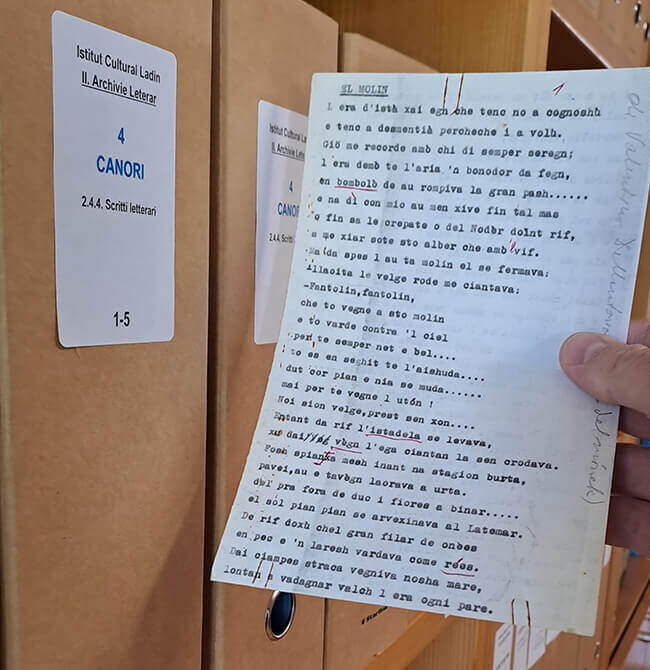 Istitut Cultural Ladin
II. Archivie Leterar
4
CANORI
2.4.4. Scritti letterari
1-5
Istitut Cultural
II. Archivie
4
CANO
2.4.4. Scritti
EL MOLIN
1
L era d'istà xai egn che tenc no a cognoshù
e tenc a desmentià percheche i a volù.
Giò me recorde ambò chi dì semper seregn;
l era demò te l'aria 'n bonodor da fegn,
en bombolò de au rompiva la gran pash......
e na dì con mio au men xive fin tal mas
fin sa le crepate o del Nodèr doint rif,
a me xiar sote sto alber che ambò vif.
Ma da spes l au ta molin el se fermava:
illaoita le velge rode me ciantava:
-Fantolin,fantolin,
che to vegne a sto molin
e to varde contra 'l ciel
per te semper net e bel....
to es en seghit te l'aishuda....
dut cor pian e nia se muda......
mai per te vegne l utón !
Noi sion velge,prest sen xon....
Entant da rif l'istadela se levava,
xu dai vegn l'ega ciantan la sen crodava.
Fosh spianxa mesh inant na stagion burta,
pavei,au e tavegn laorava a urta.
del pra fora de duc i fiores a binar.....
el sol pian pian se arvexinava al Latemar.
De rif doxù chel gran filar de onées
en pec e 'n laresh vardava come rées.
Dai ciampes straca vegniva nosha mare,
lontan a vadagnar valch l era ogni pare.